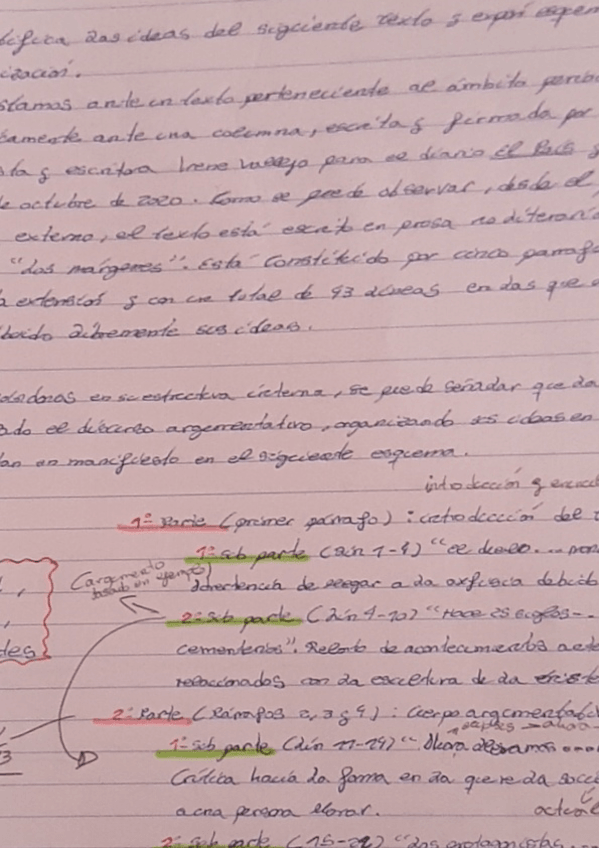 las ideas del siguiente texto y
ización.
stamos ante un texto perteneciente al ámbito perio
camente ante una columna, escrita y firmada por
sta y escritora Irene Vallejo para el diario El País y
de octubre de 2020. Como se puede observar, desde el
externo, el texto está escrito en prosa
"las márgenes". Está constituido por cinco párrafo
a extensión y con un total de 43 líneas en las que
libremente sus ideas.
en su estructura interna, se puede señalar que la
ado el discurso argumentativo, organizando ideas en
dan en manifiesto en el siguiente esquema.
introducción y
1ª Parte (primer párrafo): introducción del t
1ª sub parte (lín 1-4) "el deseo....
(argumento
basado en
Advertencia de llegar a la asfixia debido
des
2ª sub parte (Lín 4-10) "Hace 25 siglos-..
cementerios". Relato de acontecimientos
relacionados con la escritura de la
2ª Parte (Párrafos 2, 3 y 4): Cuerpo argumentati
1ª sub parte (lín 11-14) "Ahora
3
Crítica hacia la forma en la que ve la soci
a una persona llorar.
actual
2ª sub parte (15-22) "los protagonistas....